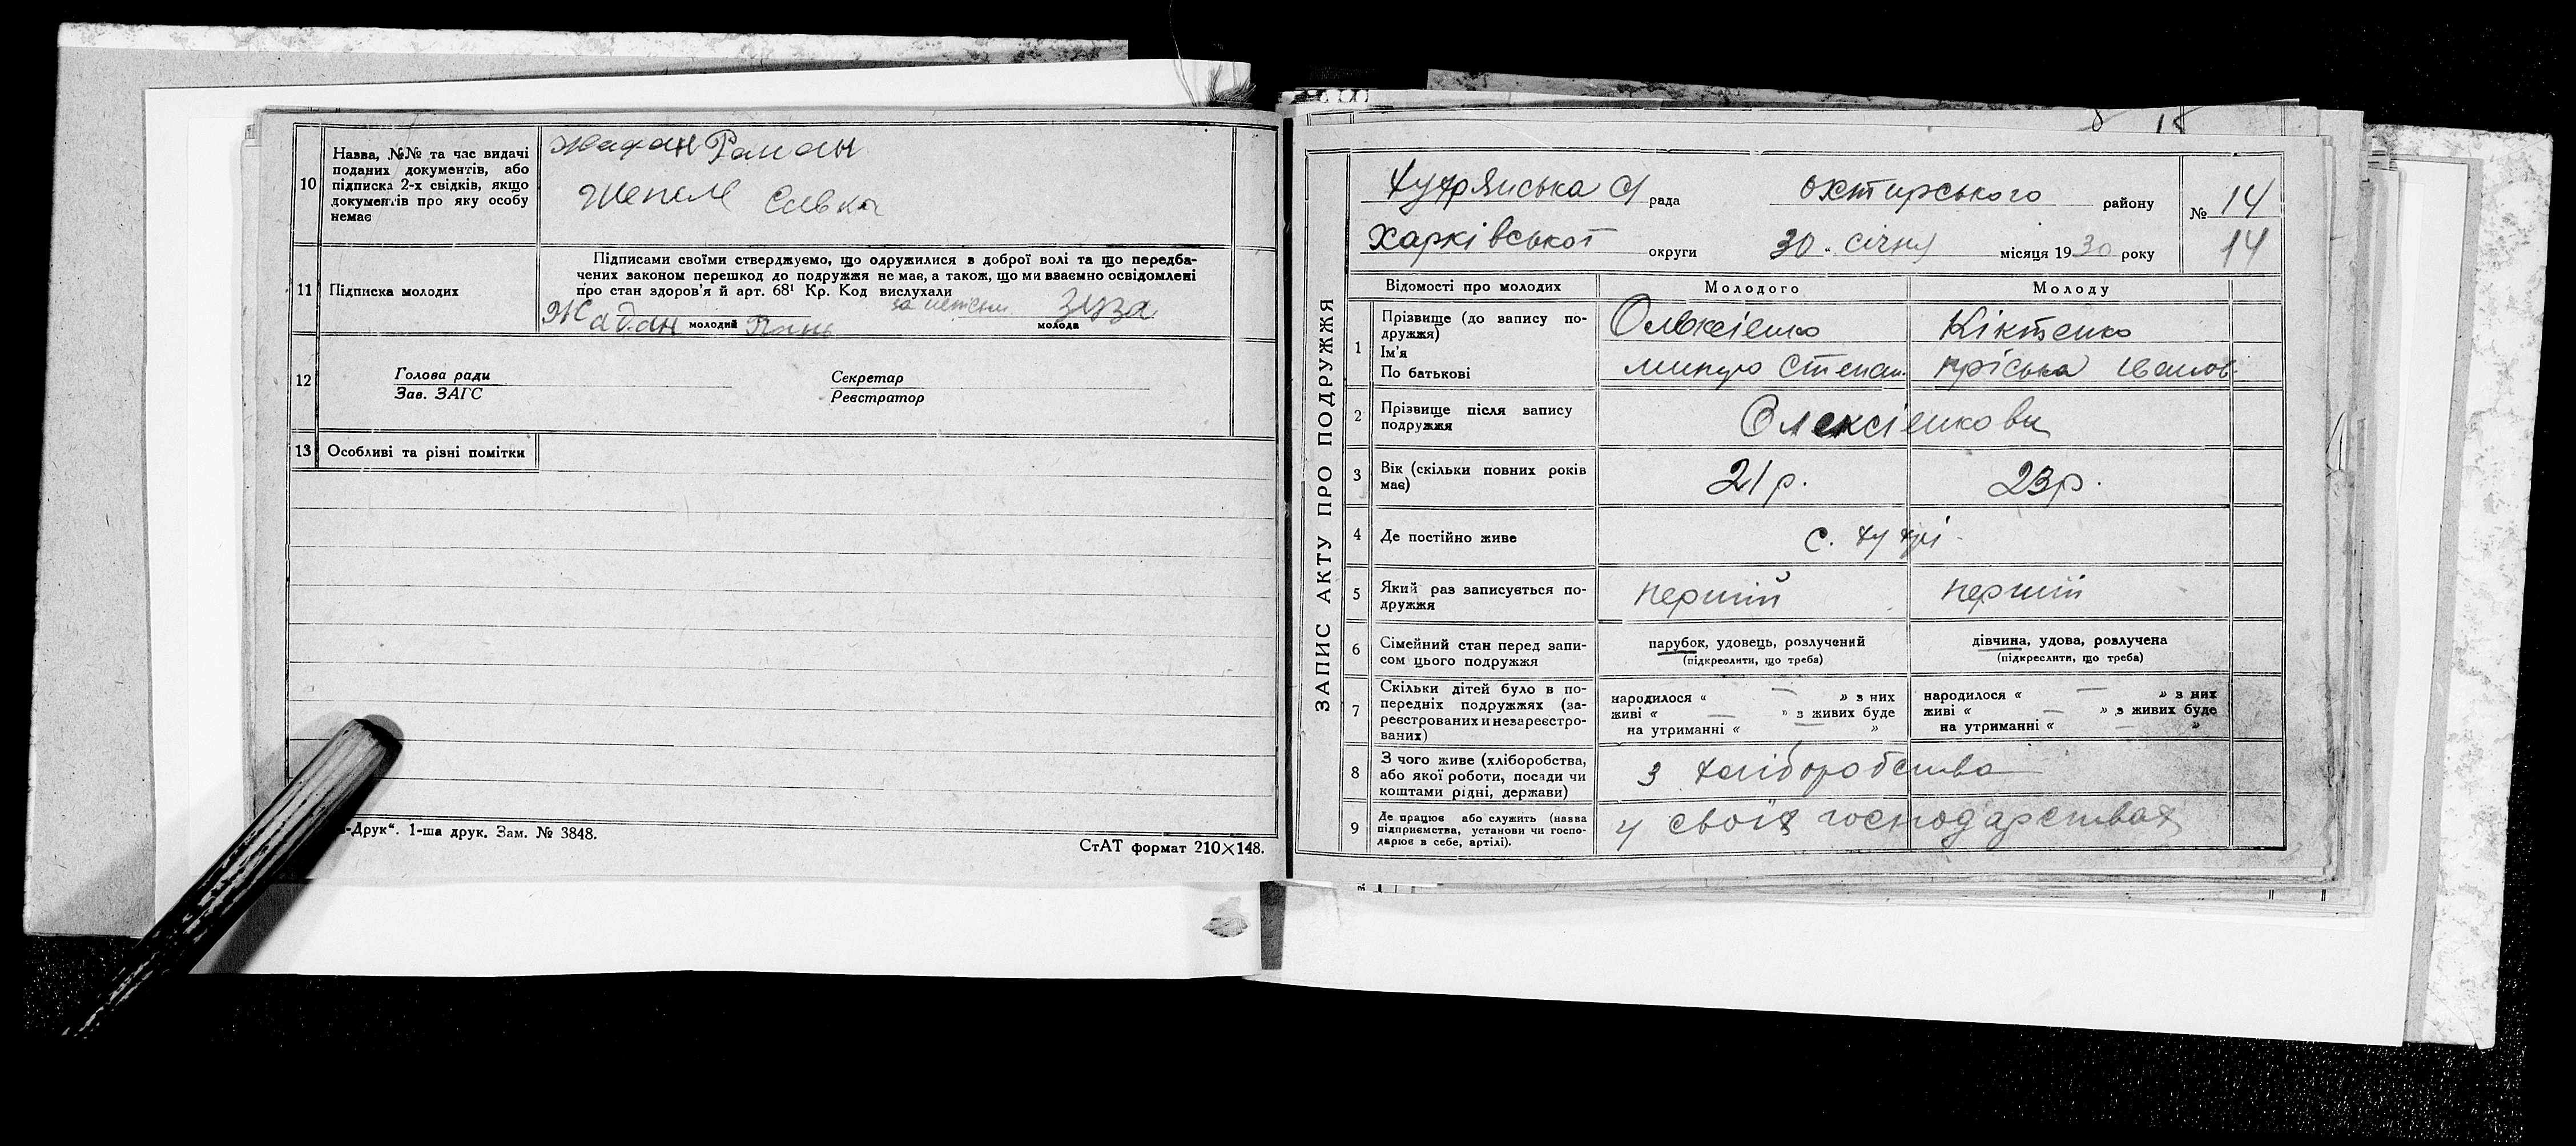 10
Назва, №№ та час видачі
поданих документів, або
підписка 2-х свідків, якщо
документів про яку особу
немає
Жадан Роман
Шепель Савка
11
Підписка молодих
Підписами своїми стверджуємо, що одружилися в доброї волі та що передба-
чених законом перешкод до подружжя не має, а також, що ми взаємно освідомлені
про стан здоров'я й арт. 68¹ Кр. Код вислухали
Жадан молодий
Зуза
молода
12
Голова ради
Зав. ЗАГС
Секретар
Реєстратор
13
Особливі та різні помітки
-Друк“. 1-ша друк. Зам. № 3848.
СтАТ формат 210×148.
ЗАПИС АКТУ ПРО ПОДРУЖЖЯ
Хухрянська С/ рада Охтирського району № 14
Харківської округи 30 “ січня місяця 1930 року 14
Відомості про молодих Молодого Молоду
1
Прізвище (до запису по-
дружжя)
Ім'я
По батькові
Олексієнко Кіктенко
Степан. Пріська Іванов.
2
Прізвище після запису
подружжя
Олексієнкови
3
Вік (скільки повних років
має)
21 р. 23 р.
4
Де постійно живе
с. Хухрі
5
Який раз записується по-
дружжя
перший перший
6
Сімейний стан перед запи-
сом цього подружжя
парубок, удовець, розлучений
(підкреслити, що треба)
дівчина, удова, розлучена
(підкреслити, що треба)
7
Скільки дітей було в по-
передніх подружжях (за-
реєстрованих и незареєстро-
ваних)
народилося « — » з них
живі « — » з живих буде
на утриманні « — »
народилося « — » з них
живі « — » з живих буде
на утриманні « — »
8
З чого живе (хліборобства,
або якої роботи, посади чи
коштами рідні, держави)
З хліборобства
9
Де працює або служить (назва
підприємства, установи чи госпо-
дарює в себе, артілі).
у своїх господарствах